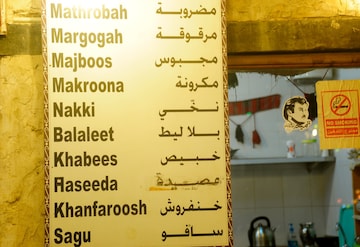 Mathrobah مضروبة
Margogah مرقوقة
Majboos مجبوس
Makroona مكرونة
Nakki نخّي
Balaleet بلاليط
Khabees خبيص
Haseeda عصيدة
Khanfaroosh خنفروش
Sagu ساقو